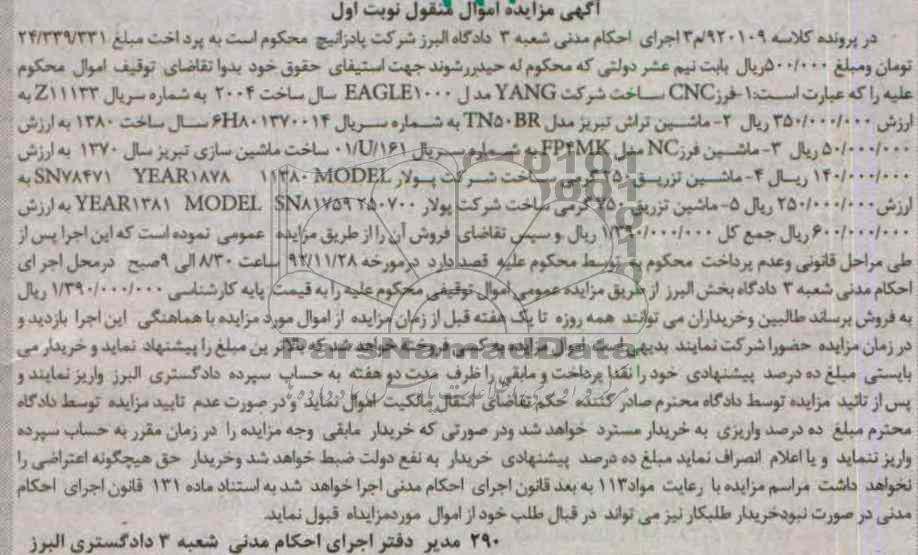 آگهی مزایده اموال منقول نوبت اول
در پرونده کلاسه ۹۲۰۱۰۹/م۳ اجرای احکام مدنی شعبه ۳ دادگاه البرز شرکت پادزانیچ محکوم است به پرداخت مبلغ ۲۴/۳۳۹/۳۳۱
تومان ومبلغ ۵۰۰/۰۰۰ریال بابت نیم عشر دولتی که محکوم له حیدررشوند جهت استیفای حقوق خود بدوا تقاضای توقیف اموال محکوم
علیه را که عبارت است:۱-فرزCNC ساخت شرکت YANG مدل EAGLE۱۰۰۰ سال ساخت ۲۰۰۴ به شماره سریال Z۱۱۱۳۳ به
ارزش ۳۵۰/۰۰۰/۰۰۰ ریال ۲- ماشین تراش تبریز مدل TN۵۰BR به شماره سریال ۶H۸۰۱۳۷۰۰۱۴ سال ساخت ۱۳۸۰ به ارزش
۵۰/۰۰۰/۰۰۰ ریال ۳- ماشین فرزNC مدل FP۴MK به شماره سریال ۰۱/U/۱۶۱ ساخت ماشین سازی تبریز سال ۱۳۷۰ به ارزش
۱۴۰/۰۰۰/۰۰۰ ریال ۴- ماشین تزریق ۲۵۰ گرمی ساخت شرکت پولار SN۷۸۴۷۱ YEAR۱۸۷۸ ۱۱۳۸۰ MODEL به
ارزش ۲۵۰/۰۰۰/۰۰۰ ریال ۵- ماشین تزریق ۷۵۰ گرمی ساخت شرکت پولار YEAR۱۳۸۱ MODEL SN۸۱۷۵۹ ۲۵۰۷۰۰ به ارزش
۶۰۰/۰۰۰/۰۰۰ ریال جمع کل ۱/۳۹۰/۰۰۰/۰۰۰ ریال و سپس تقاضای فروش آن را از طریق مزایده عمومی نموده است که این اجرا پس از
طی مراحل قانونی وعدم پرداخت محکوم به توسط محکوم علیه قصد دارد درمورخه ۹۲/۱۱/۲۸ ساعت ۸/۳۰ الی ۹صبح درمحل اجرای
احکام مدنی شعبه ۳ دادگاه بخش البرز از طریق مزایده عمومی اموال توقیفی محکوم علیه را به قیمت پایه کارشناسی ۱/۳۹۰/۰۰۰/۰۰۰ ریال
به فروش برساند طالبین وخریداران می توانند همه روزه تا یک هفته قبل از زمان مزایده از اموال مورد مزایده با هماهنگی این اجرا بازدید و
در زمان مزایده حضورا شرکت نمایند بدیهی است اموال مزایده به کسی فروخته خواهد شد که بالاترین مبلغ را پیشنهاد نماید و خریدار می
بایستی مبلغ ده درصد پیشنهادی خود را نقدا پرداخت و مابقی را ظرف مدت دو هفته به حساب سپرده دادگستری البرز واریز نمایند و
پس از تائید مزایده توسط دادگاه محترم صادر کننده حکم تقاضای انتقال مالکیت اموال نماید و در صورت عدم تایید مزایده توسط دادگاه
محترم مبلغ ده درصد واریزی به خریدار مسترد خواهد شد ودر صورتی که خریدار مابقی وجه مزایده را در زمان مقرر به حساب سپرده
واریز ننماید و یا اعلام انصراف نماید مبلغ ده درصد پیشنهادی خریدار به نفع دولت ضبط خواهد شد وخریدار حق هیچگونه اعتراضی را
نخواهد داشت مراسم مزایده با رعایت مواد۱۱۳ به بعد قانون اجرای احکام مدنی اجرا خواهد شد به استناد ماده ۱۳۱ قانون اجرای احکام
مدنی در صورت نبودخریدار طلبکار نیز می تواند در قبال طلب خود از اموال موردمزایداه قبول نماید.
۲۹۰ مدیر دفتر اجرای احکام مدنی شعبه ۳ دادگستری البرز
ParsNamadData